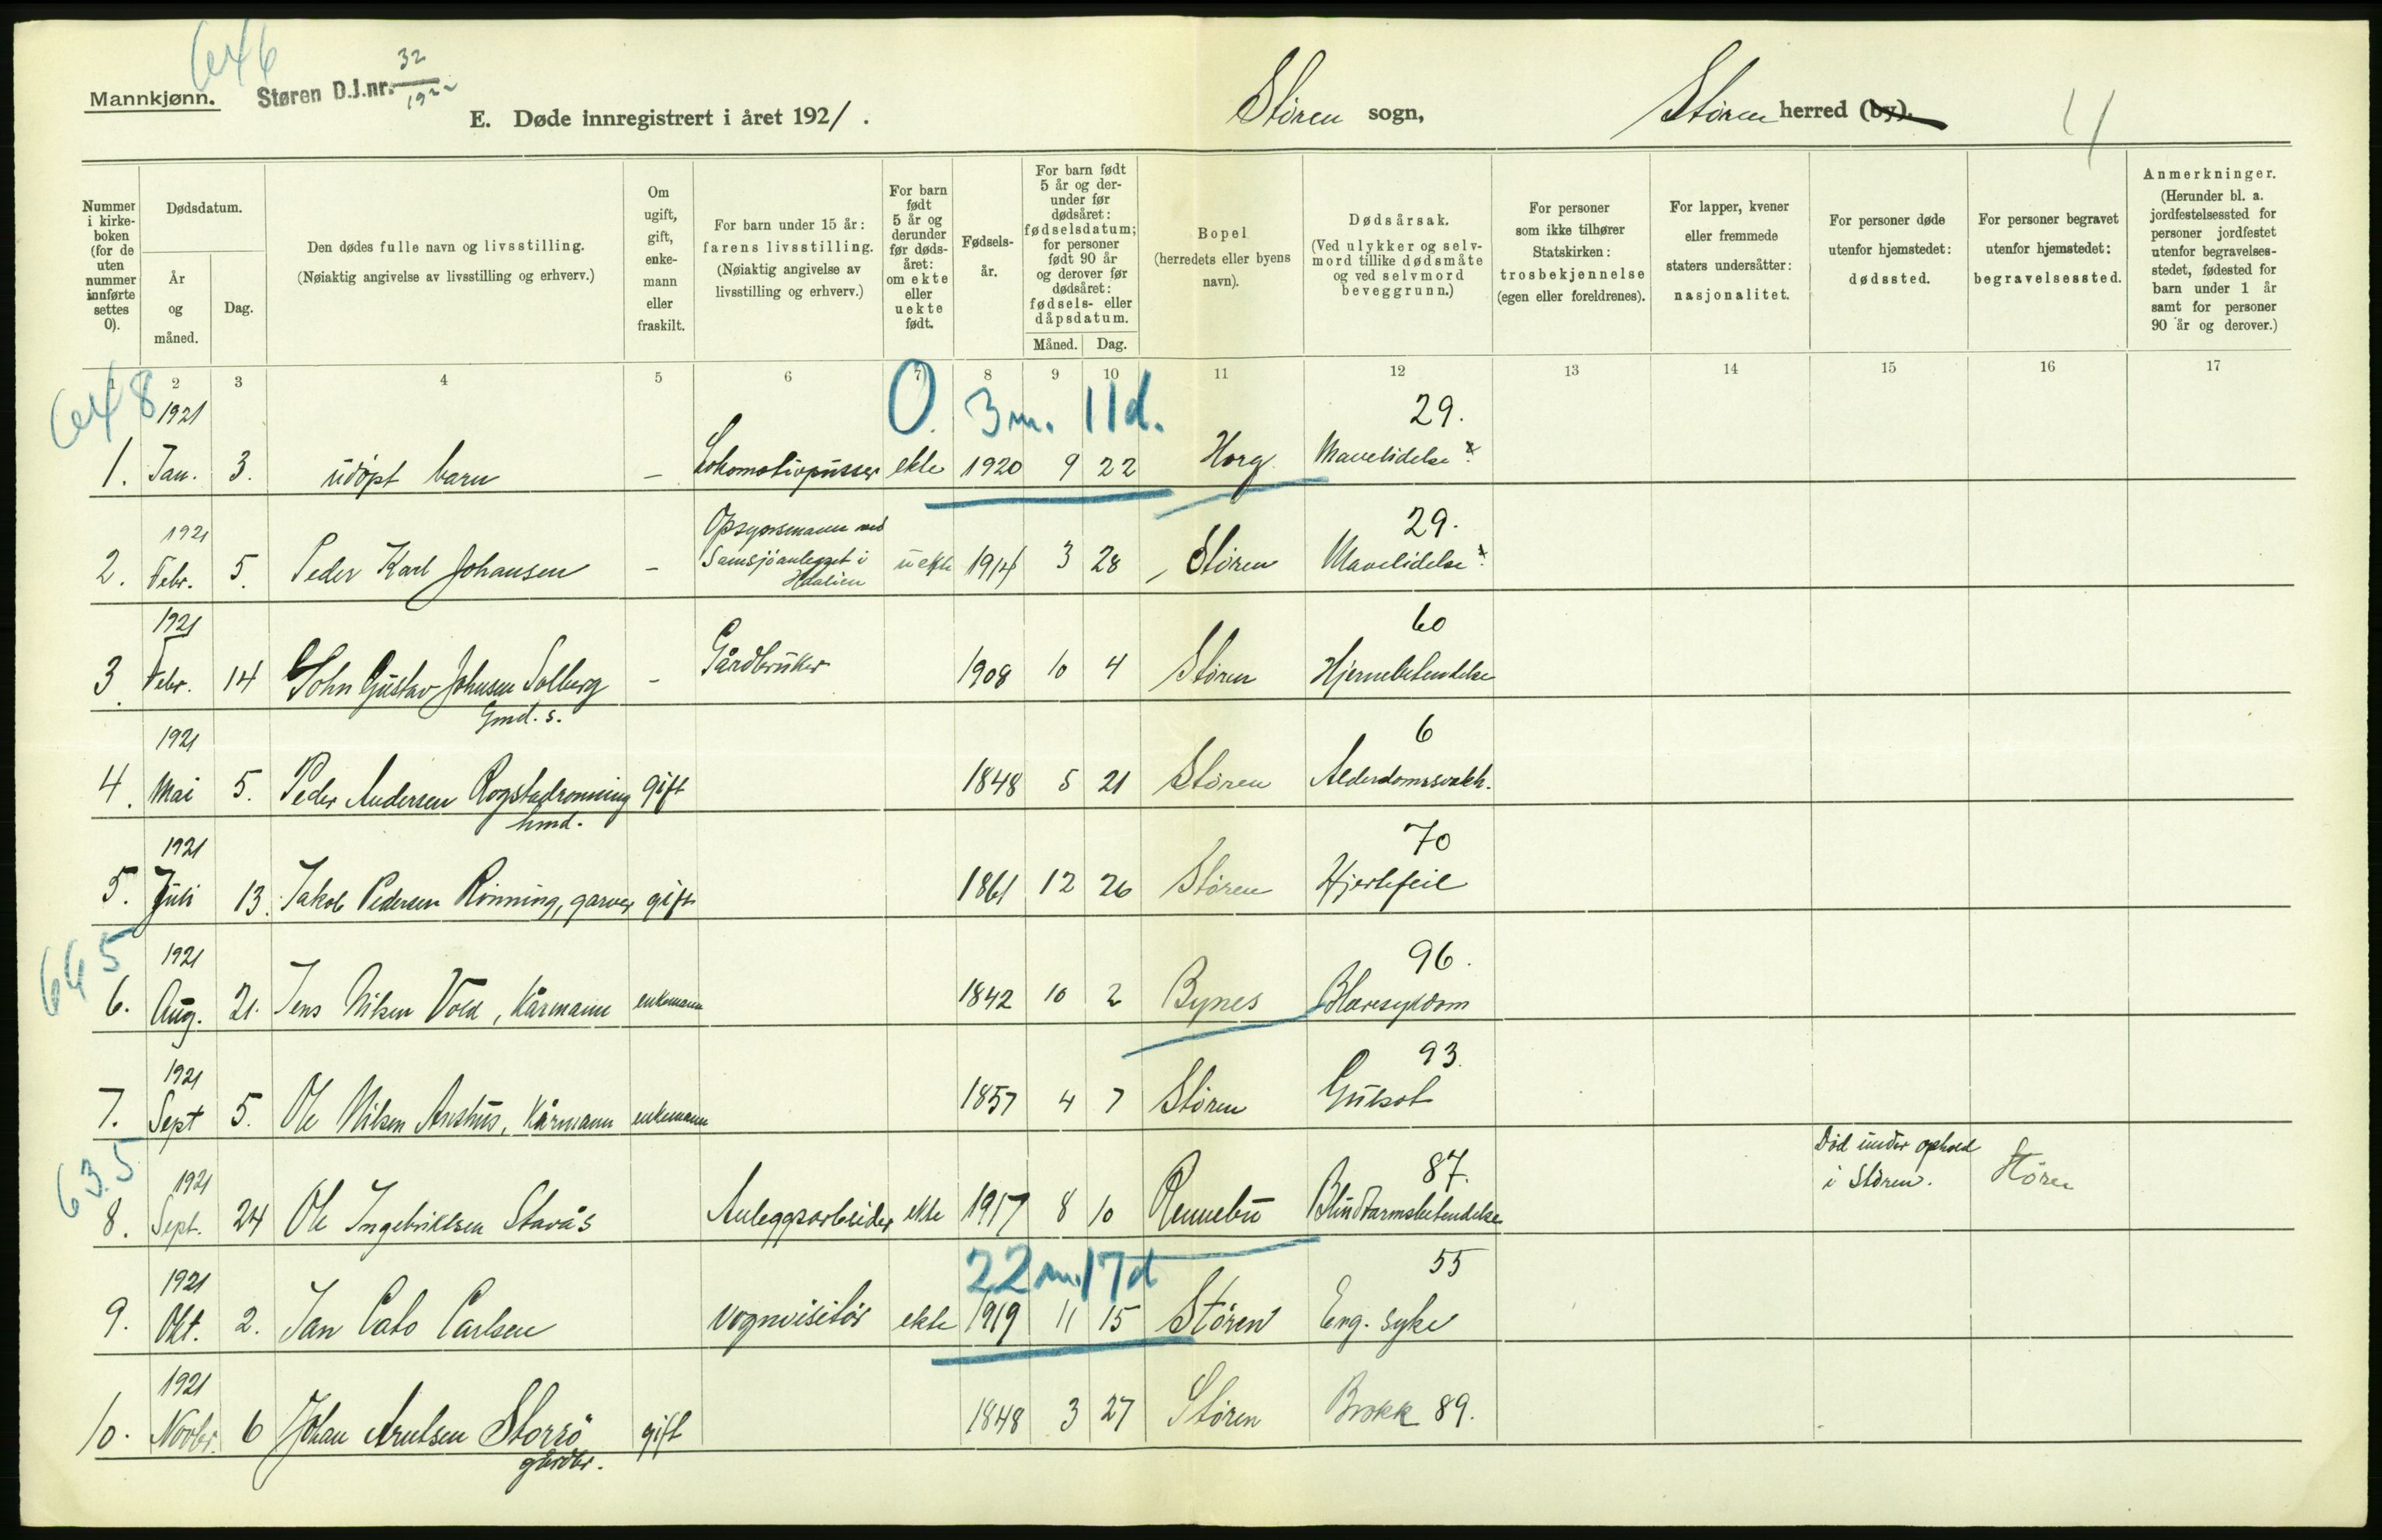 646
Mannkjønn. Støren D.J.nr. 32/1922
E. Døde innregistrert i året 1921. Støren sogn, Støren herred (by). 4
Nummer i kirkeboken (for de uten nummer innførte settes 0).
Dødsdatum.
År og måned.
Dag.
Den dødes fulle navn og livsstilling.
(Nøiaktig angivelse av livsstilling og erhverv.)
Om ugift, gift, enkemann eller fraskilt.
For barn under 15 år: farens livsstilling. (Nøiaktig angivelse av livsstilling og erhverv.)
For barn født 5 år og derunder før dødsåret: om ekte eller uekte født.
Fødselsår.
For barn født 5 år og derunder før dødsåret: fødselsdatum; for personer født 90 år og derover før dødsåret: fødsels- eller dåpsdatum.
Måned. Dag.
Bopel (herredets eller byens navn).
Dødsårsak. (Ved ulykker og selvmord tillike dødsmåte og ved selvmord beveggrunn.)
For personer som ikke tilhører Statskirken: trosbekjennelse (egen eller foreldrenes).
For lapper, kvener eller fremmede staters undersåtter: nasjonalitet.
For personer døde utenfor hjemstedet: dødssted.
For personer begravet utenfor hjemstedet: begravelsessted.
Anmerkninger. (Herunder bl. a. jordfestelsessted for personer jordfestet utenfor begravelsesstedet, fødested for barn under 1 år samt for personer 90 år og derover.)
1 2 3 4 5 6 7 8 9 10 11 12 13 14 15 16 17
648 1921 0 3 m. 11 d. 29.
1. Jan. 3. udöpt barn – Lokomotivpusser ekte 1920 9 22 Horg Mavelidelse
1921 Opsynsmann ved 29.
2. Febr. 5. Peder Karl Johansen – Samsjöanlegget i uekte 1914 3 28 Støren Mavelidelse
Haalien
1921 60
3. Febr. 14 John Gustav Johnsen Solberg – Gårdbruker 1908 10 4 Støren Hjernebetendelse
Gmd. s.
1921 6
4. Mai 5. Peder Andersen Rogstadrønning gift 1848 5 21 Støren Alderdomssvakh.
hmd.
1921 70
5. Juli 13. Jakob Pedersen Rönning, garver gift 1861 12 26 Støren Hjertefeil
645 1921 96.
6. Aug. 21. Jens Nilsen Vold, Kårmann enkemann 1842 10 2 Bynes Blæresykdom
1921 93.
7. Sept 5. Ole Nilsen Anshus, Kårmann enkemann 1857 4 7 Støren Gulsot
635 1921 87. Död under ophold
8. Sept. 24 Ole Ingebriktsen Stavås Anleggsarbeider ekte 1917 8 10 Rennebu Blindtarmsbetendelse i Støren. Støren
1921 22 m. 17 d 55
9. Okt. 2. Jan Cato Carlsen vognvisitör ekte 1919 11 15 Støren Eng. syke
1921
10. Novbr. 6 Johan Arntsen Storrö gift 1848 3 27 Støren Brokk 89.
gårdbr.